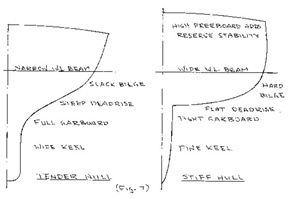 NARROW WL BEAM
SLACK BILGE
STEEP DEADRISE
FULL GARBOARD
WIDE KEEL
TENDER HULL
(Fig. 7)
HIGH FREEBOARD ADDS
RESERVE STABILITY
WIDE WL BEAM
HARD
BILGE
FLAT DEADRISE
TIGHT GARBOARD
FINE KEEL
STIFF HULL